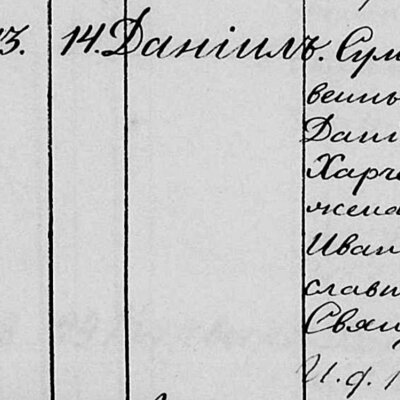 13. 14. Даніилъ. Сум
венны
Дани
Харч
жена
Иван
слави
Свящ
И.д.